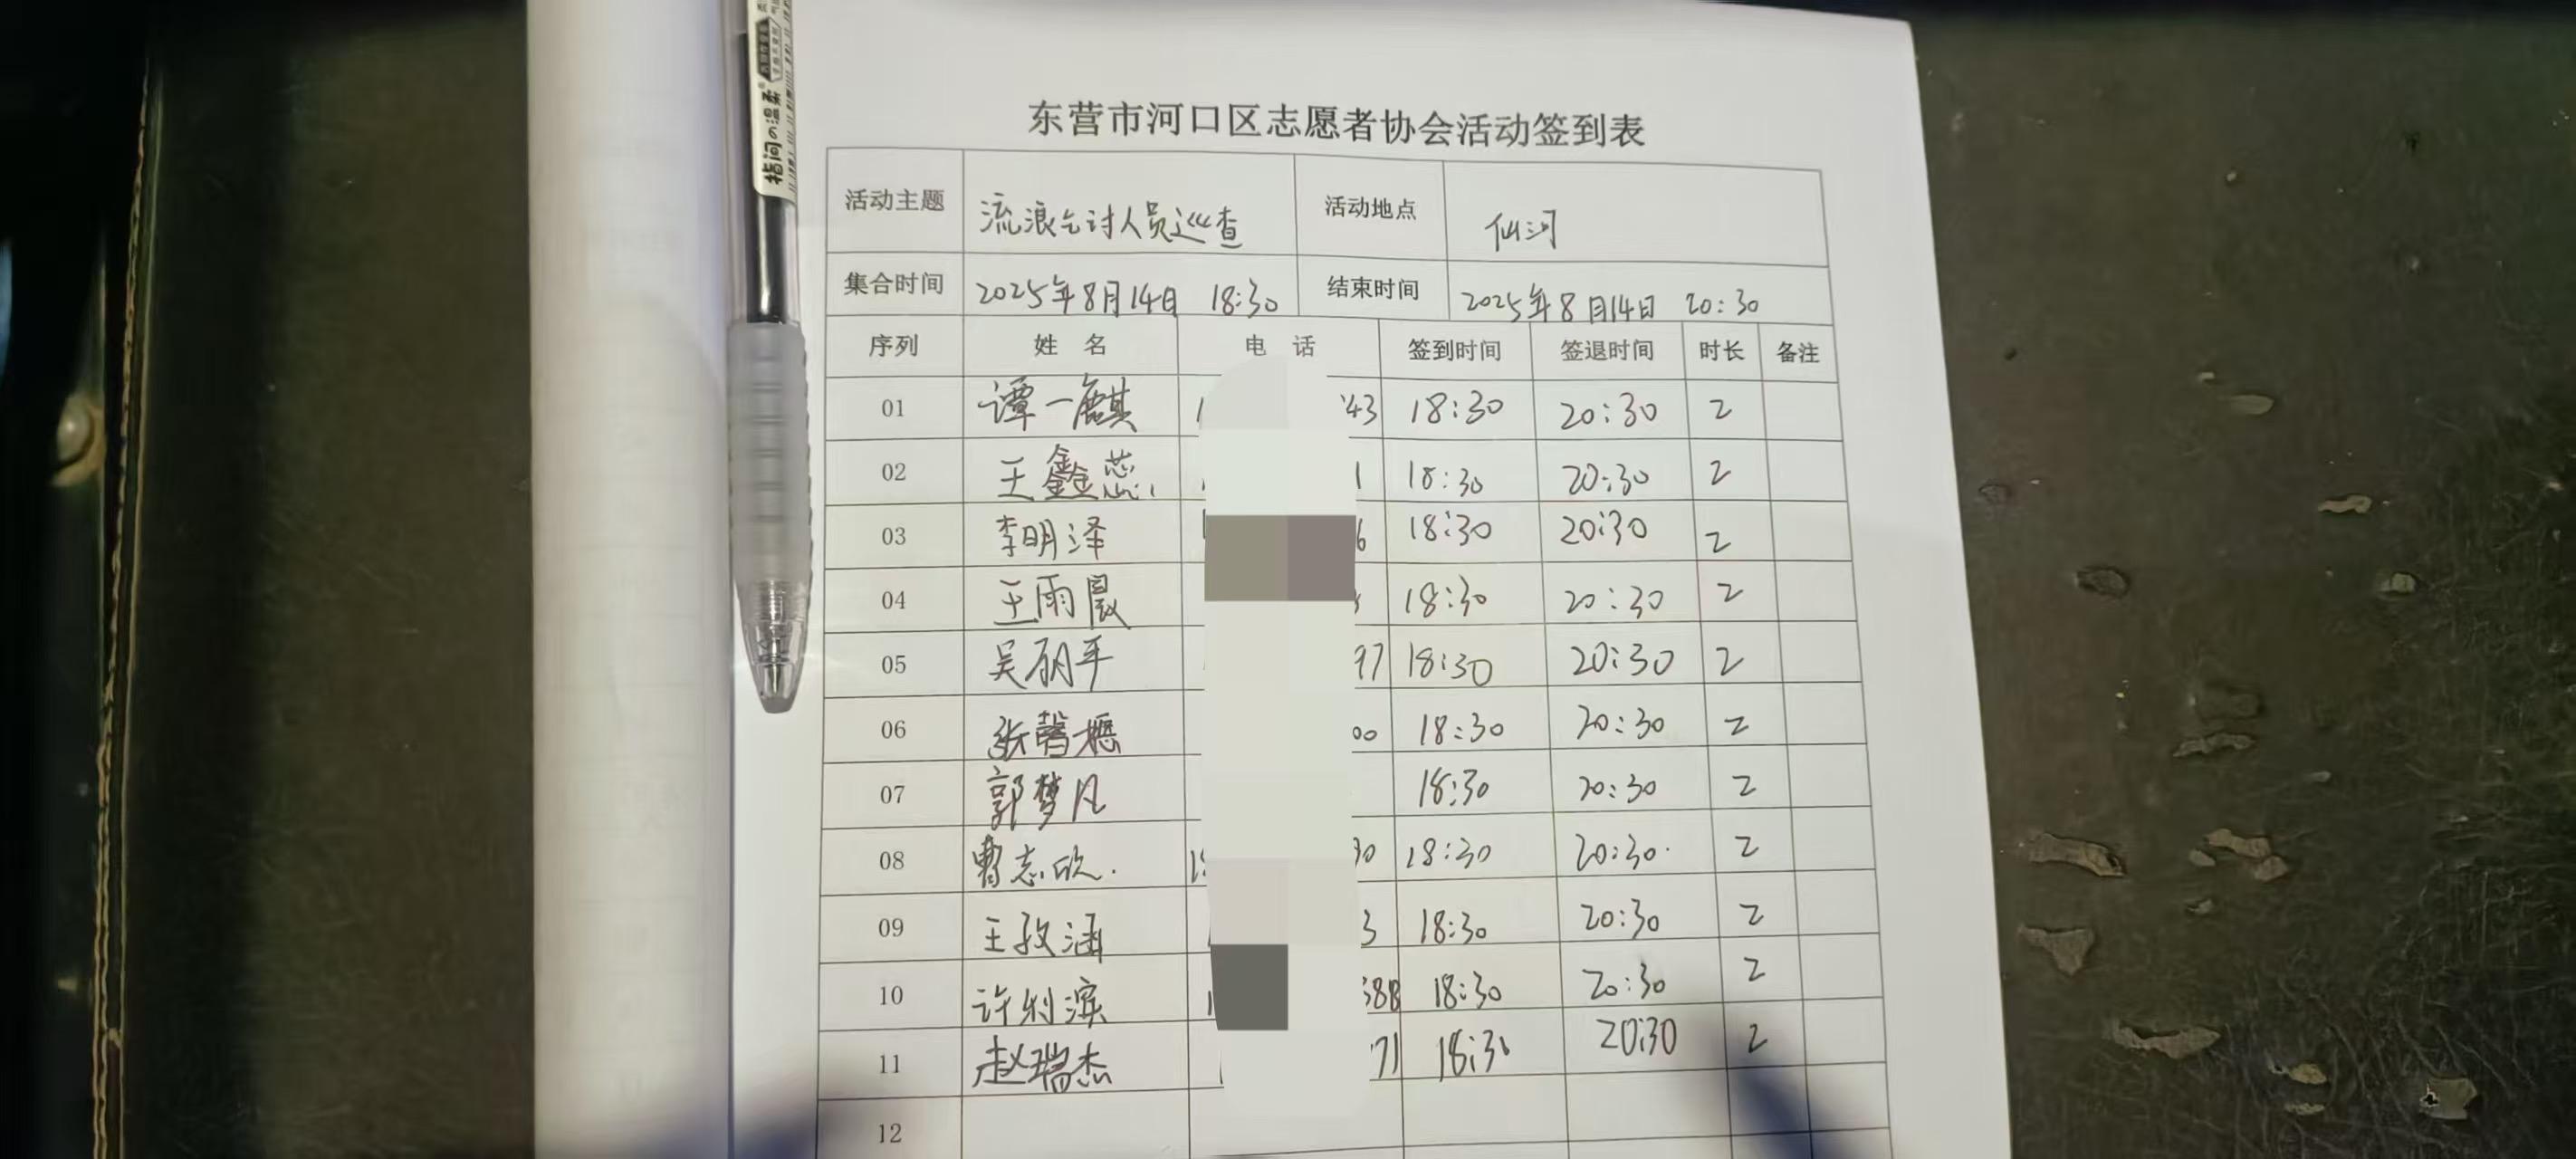 指间の温柔
东营市河口区志愿者协会活动签到表
活动主题 流浪乞讨人员巡查 活动地点 仙河
集合时间 2025年8月14日 18:30 结束时间 2025年8月14日 20:30
序列 姓名 电话 签到时间 签退时间 时长 备注
01 谭一麒 1 43 18:30 20:30 2
02 王鑫蕊 1 18:30 20:30 2
03 李明泽 6 18:30 20:30 2
04 王雨晨 18:30 20:30 2
05 吴丽平 97 18:30 20:30 2
06 张馨 00 18:30 20:30 2
07 郭梦凡 18:30 20:30 2
08 曹志欣 30 18:30 20:30 2
09 王孜涵 3 18:30 20:30 2
10 许利滨 388 18:30 20:30 2
11 赵瑞杰 71 18:30 20:30 2
12